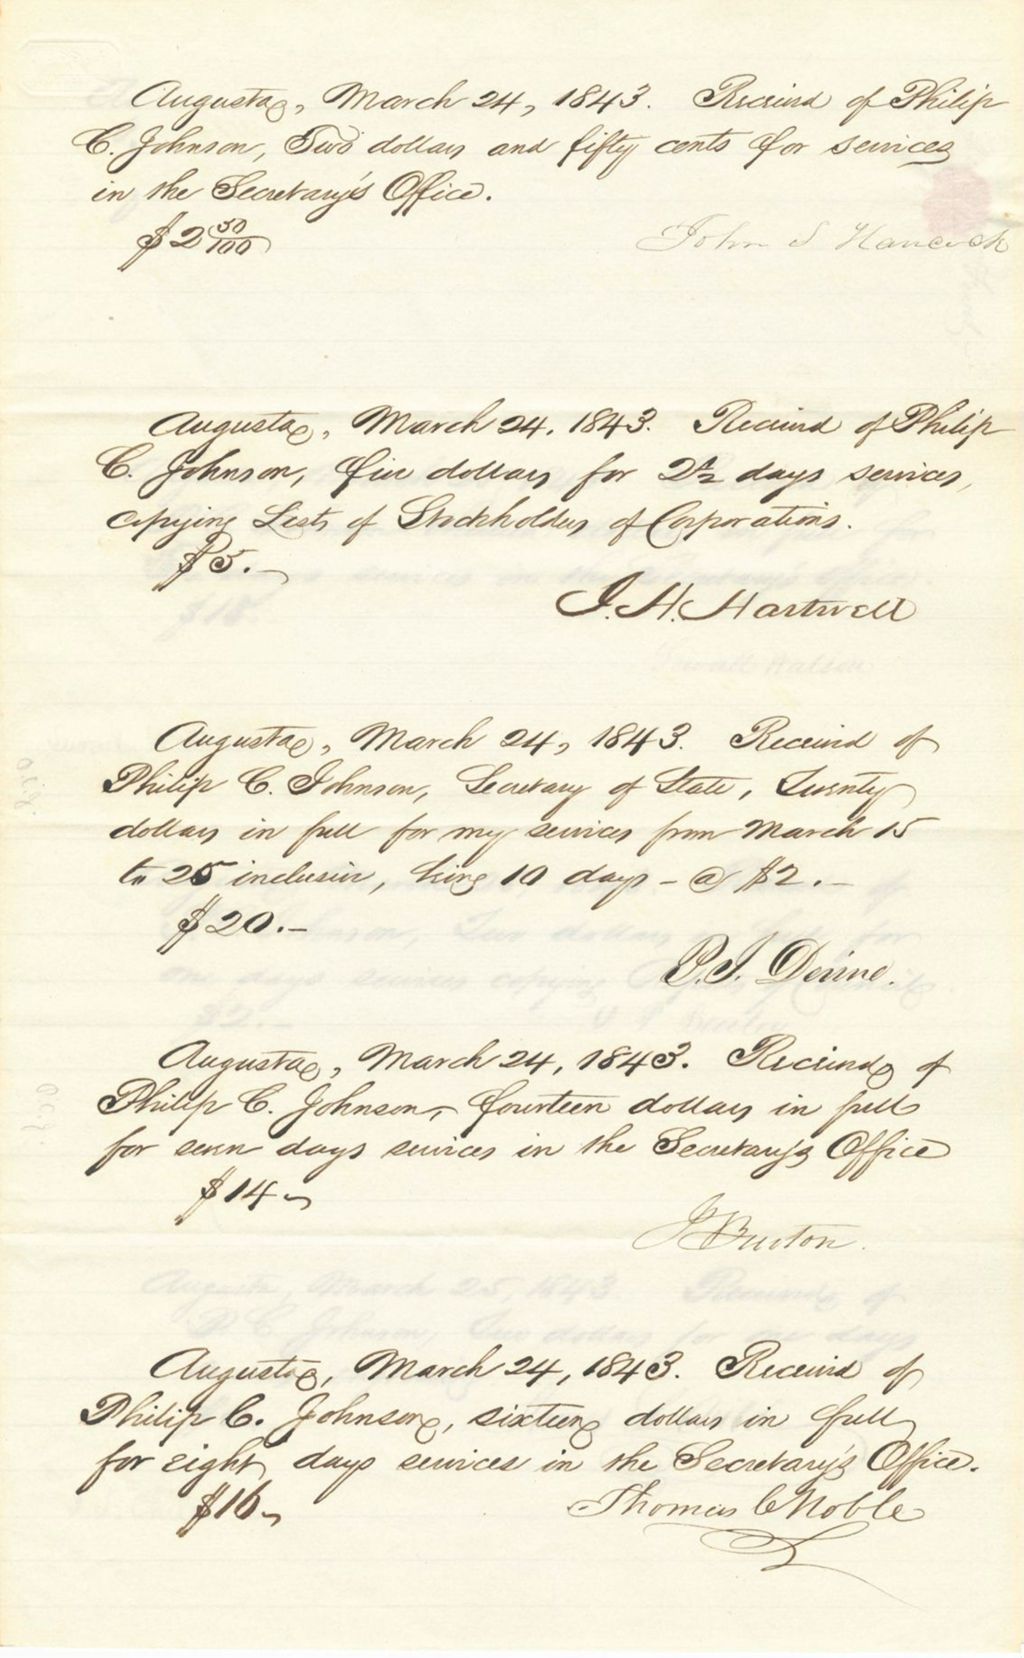 Augusta, March 24, 1843. Received of Philip
C. Johnson, Two dollars and fifty cents for services
in the Secretary's Office.
$2 50/100
John S Hancock
Augusta, March 24, 1843. Received of Philip
C. Johnson, five dollars for 2½ days services,
copying Lists of Stockholders of Corporations.
$5.—
J. H. Hartwell
Augusta, March 24, 1843. Received of
Philip C. Johnson, Secretary of State, Twenty
dollars in full for my services from March 15
to 25 inclusive, being 10 days — @ $2.—
$20.—
P. J. Devine.
Augusta, March 24, 1843. Received of
Philip C. Johnson, fourteen dollars in full
for seven days services in the Secretary's Office
$14—
J Burton.
Augusta, March 24, 1843. Received of
Philip C. Johnson, sixteen dollars in full
for eight days services in the Secretary's Office.
$16—
Thomas C Noble